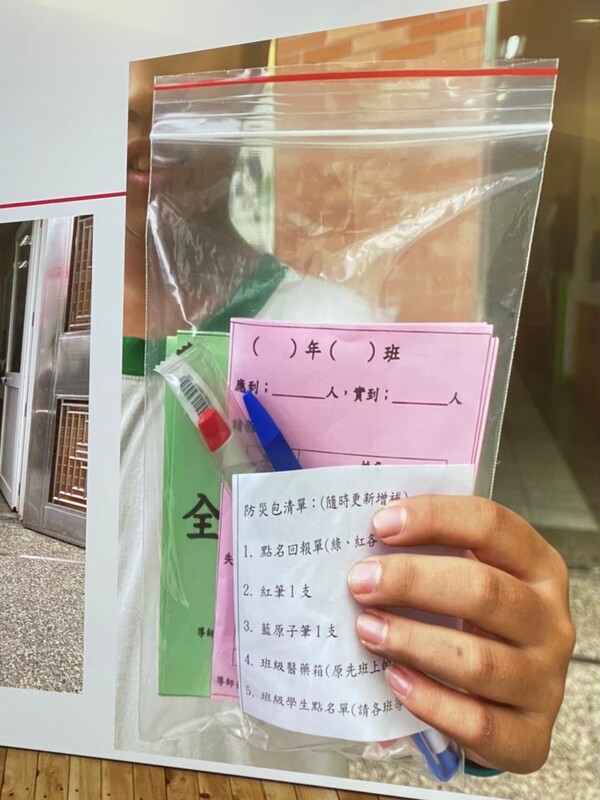 (　)年(　)班
應到；______人，實到；______人
全
失
導師
導師
防災包清單：(隨時更新增補)
1. 點名回報單(綠、紅各
2. 紅筆1支
3. 藍原子筆1支
4. 班級醫藥箱(原先班上的
5. 班級學生點名單(請各班